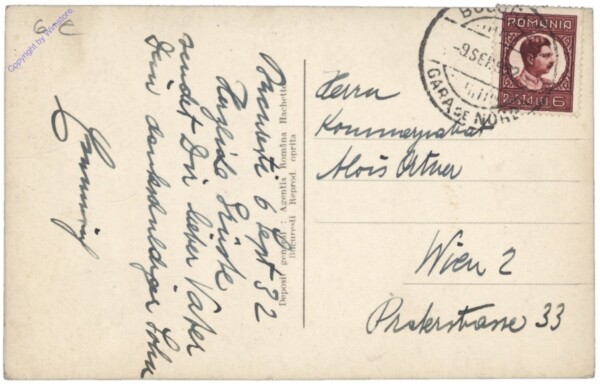 Bucuresti 6 Sept 32
Herzliche Grüsse
sendet Dir lieber Vater
Dein dankschuldiger Sohn
Deposit general : Agentia Română Hachette
Bucuresti Reprod. oprita
Herrn
Kommerzialrat
Alois Ortner
Wien 2
Praterstrasse 33
ROMANIA
6
-9 SEP
(GARA DE NORD)
Copyright by Winzstore